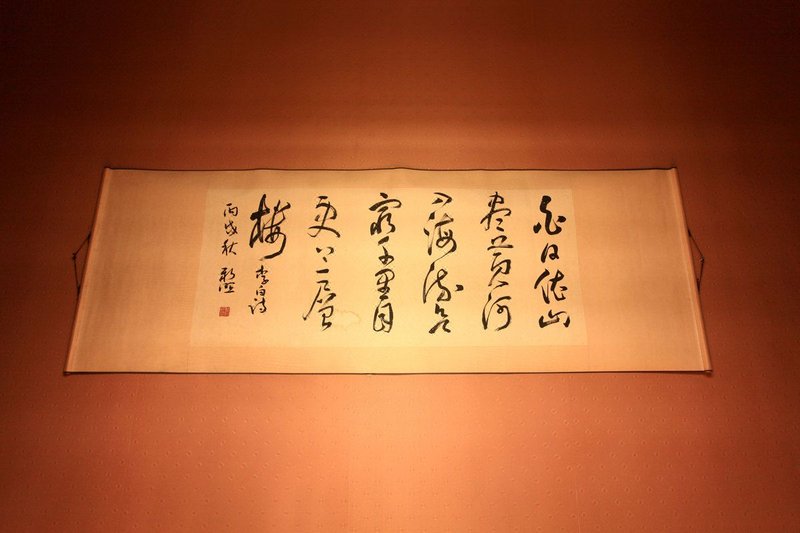 白日依山
盡黄河
入海流欲
窮千里目
更上一層
楼 李白诗
丙戌秋